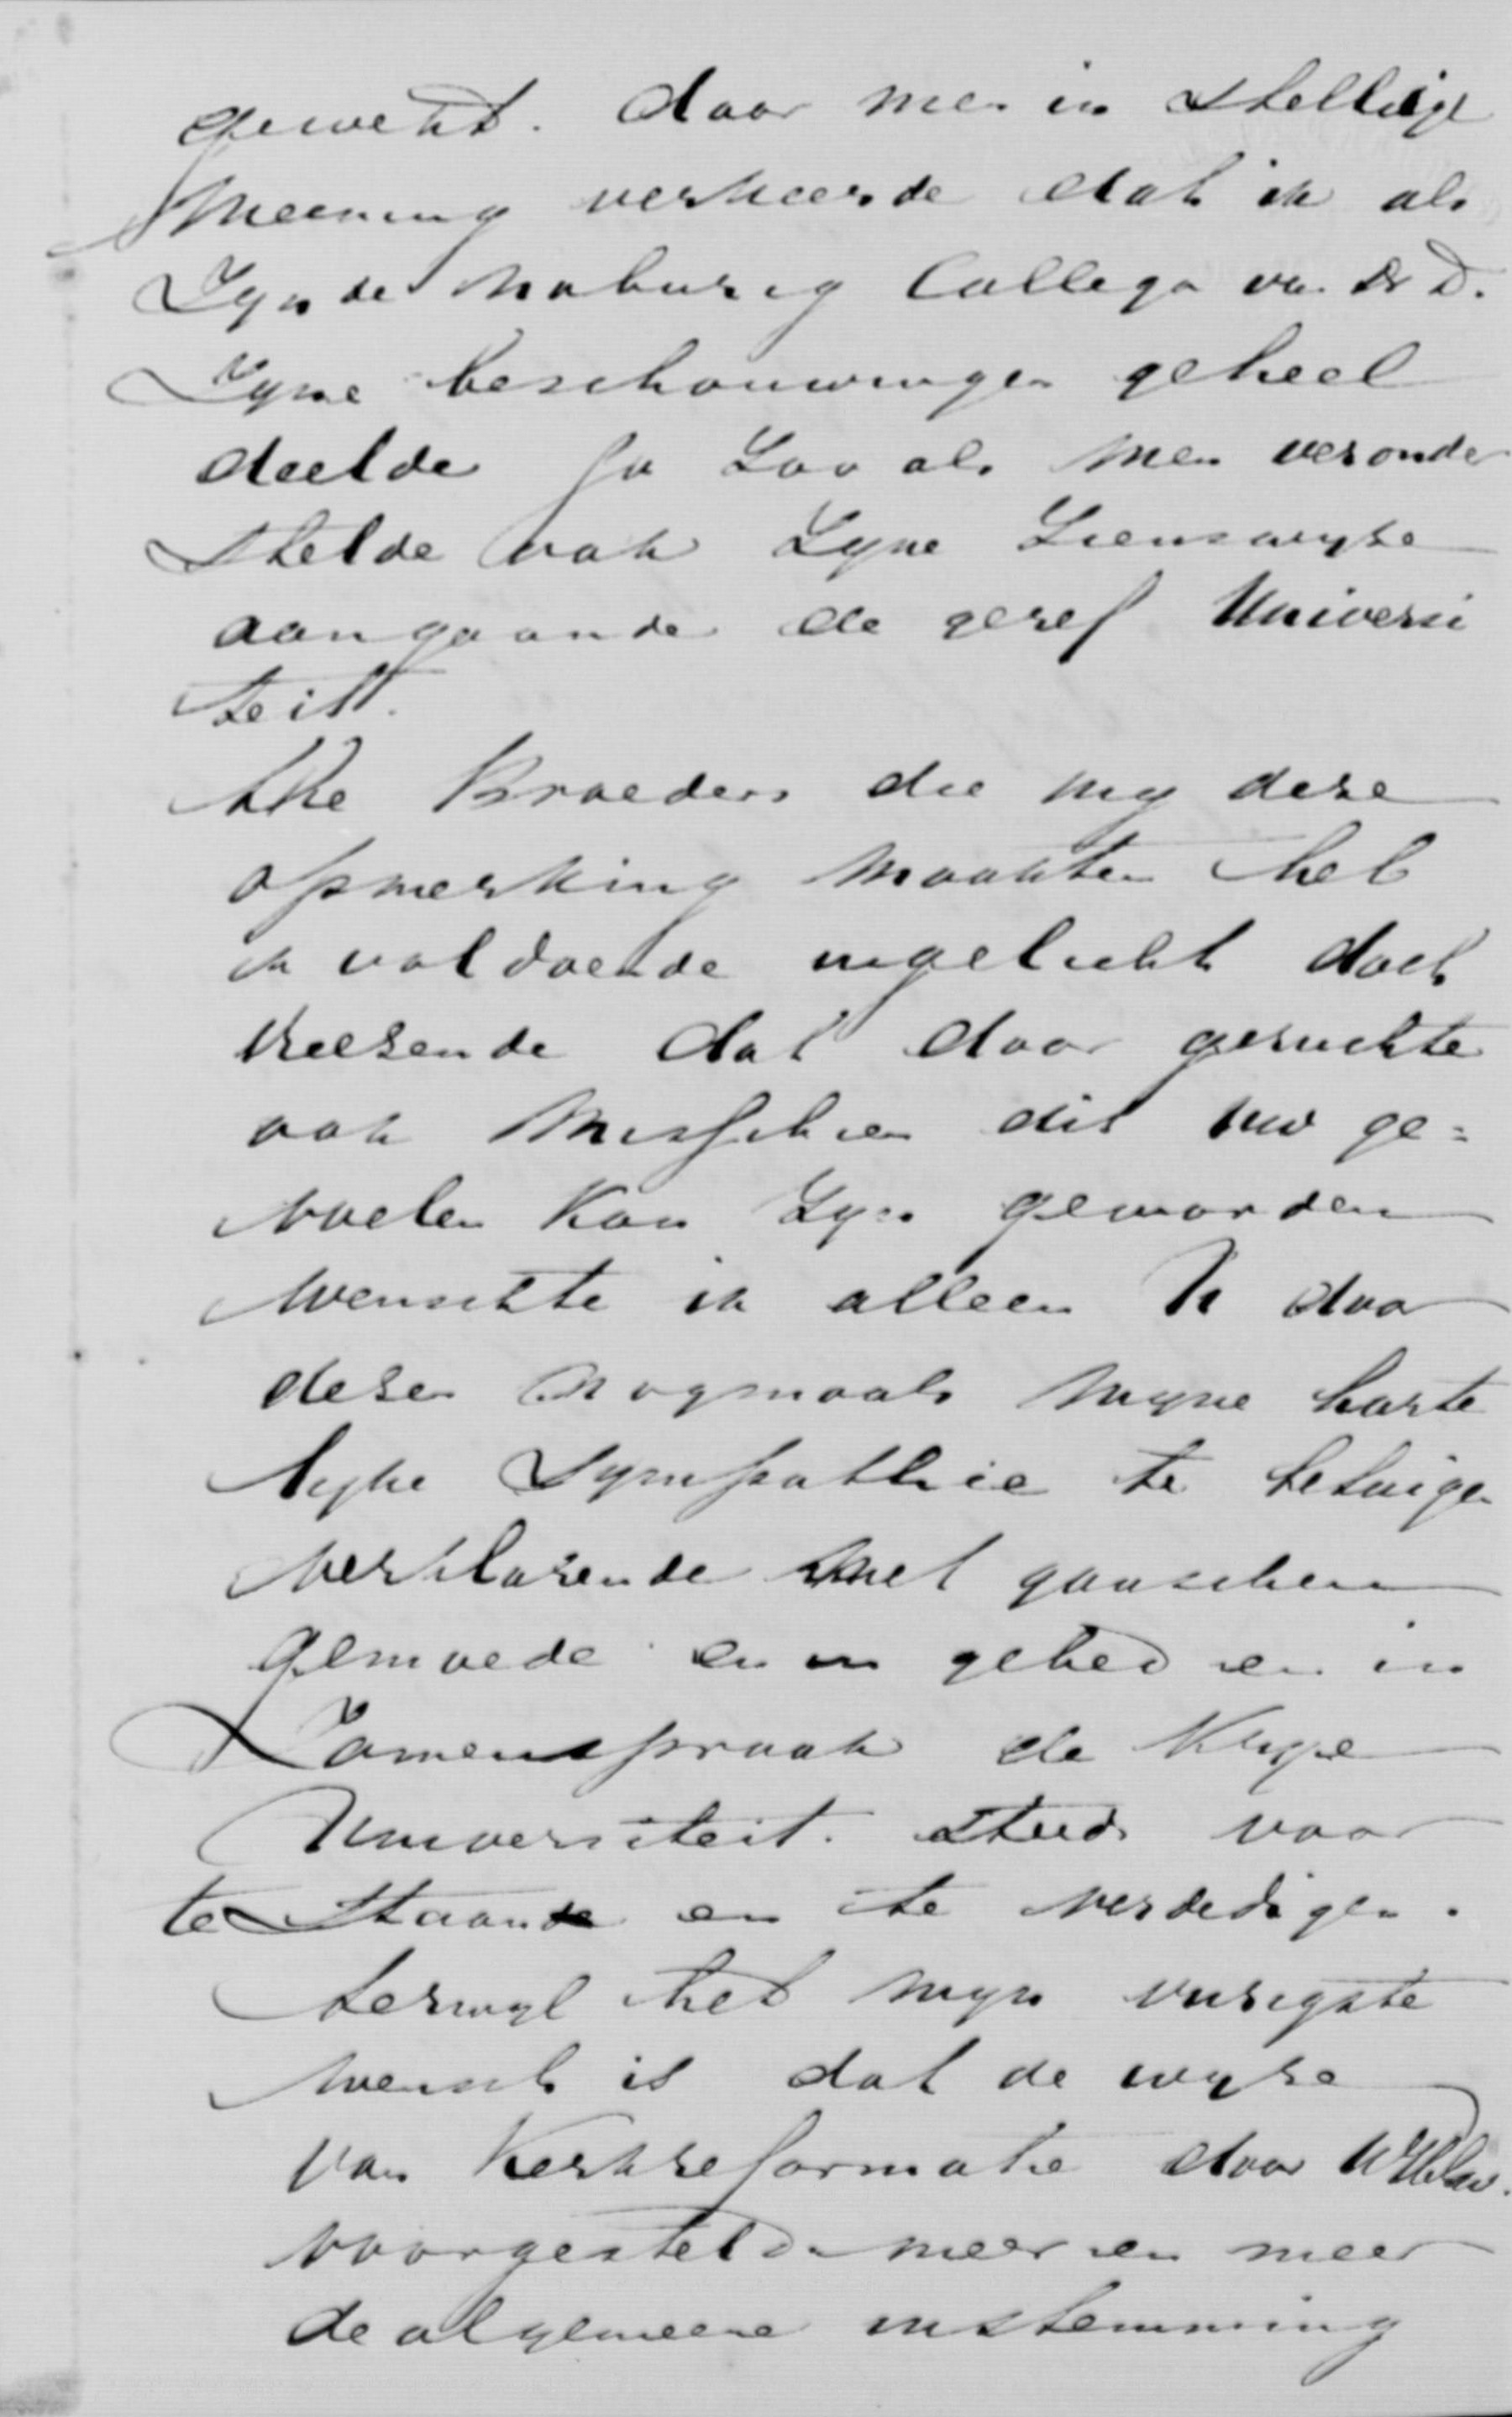 gewekt. daar men in stellige
meening verkeerde dat ik als
Zynde naburig Collega van Dr D.
Zyne beschouwingen geheel
deelde ja Zoo als men veronder
stelde ook Zyne Zienswyze
aangaande de geref Universi
teit.
Die Broeders die my deze
opmerking maakten heb
ik voldoende ingelicht doch
vreezende dat door geruchte
ook misschien dit uw ge=
voelen Kon Zyn geworden
wenschte ik alleen U door
dezen nogmaals myne harte
lyke Sympathie te betuigen
verklarende met ganschen
gemoede en in gebed en in
Zamenspraak de Vrye
Universiteit. steeds voor
te staande en te verdedigen.
terwyl het myn vurigste
wensch is dat de wyze
van Kerkreformatie door
voorgesteld meer en meer
de algemeene instemming